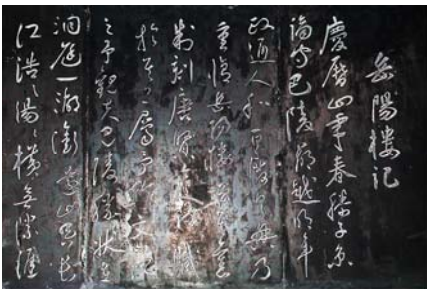 岳陽樓記
慶曆四年春滕子京
謫守巴陵郡越明年
政通人和百廢具興乃
重修岳陽樓增其舊
制刻唐賢今人詩賦
於其上屬予作文以記
之予觀夫巴陵勝狀在
洞庭一湖銜遠山吞長
江浩〻湯〻橫無際涯